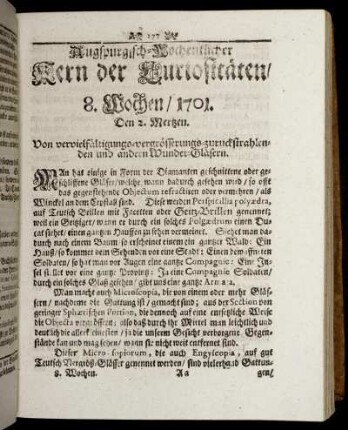 177
Augspurgisch-Wochentlicher
Kern der Curiositäten/
8. Wochen/ 1701.
Den 2. Mertzen.
Von vervielfältigungs-vergrösserungs-zuruckstrahlen-
den und andern Wunder-Gläsern.
MAn hat einige in Form der Diamanten geschnittene oder ge-
schliffene Gläser/ welche wann dadurch gesehen wird/ so offt
das gegenstehende Objectum refractiren oder vermehren/ als
Winckel an dem Crystall sind. Diese werden Perspicillia polyædra,
auf Teutsch Brillen mit Facetten oder Geitz-Brillen genennet/
weil ein Geitziger/ wann er durch ein solches Polyædrum einen Du-
cat siehet/ einen gantzen Hauffen zu sehen vermeinet. Siehet man da-
durch nach einem Baum so erscheinet einem ein gantzer Wald: Ein
Hauß/ so kommet dem Sehenden vor eine Stadt: Einen bewaffneten
Soldaten/ so hat man vor Augen eine gantze Compagnie: Eine In-
sel stellet vor eine gantze Provintz: Ja eine Compagnie Soldaten/
durch ein solches Glaß gesehen/ gibt uns eine gantz Armata.
Man macht auch Microscopia, die von einem oder mehr Glä-
sern/ nachdeme die Gattung ist/ gemacht sind; aus der Section von
geringer Sphærischen Portion, die dennoch auf eine entsetzliche Weise
die Objecta vergrössern/ also daß durch ihr Mittel man leichtlich und
deutlich die allerkleinesten/ ja die unserm Gesicht verborgene Gegen-
stände kan und mag sehen/ wann sie nicht weit entfernet sind.
Dieser Microscopiorum, die auch Engyscopia, auf gut
Teutsch Vergröß-Glässer genennet werden/ sind vielerhand Gattun-
8. Wochen. Aa gen/